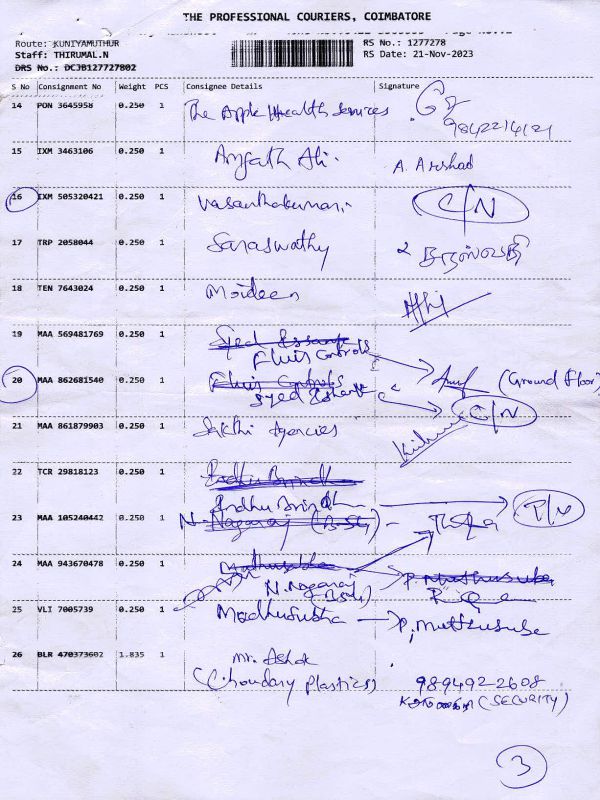 THE PROFESSIONAL COURIERS, COIMBATORE
Route: KUNIYAMUTHUR
Staff: THIRUMAL.N
DRS No.: DCJB127727802
RS No.: 1277278
RS Date: 21-Nov-2023
S No Consignment No Weight PCS Consignee Details Signature
14 PON 3645958 0.250 1 The Apple Health Services
9842214121
15 IXM 3463106 0.250 1 Ali. A. Arshad
16 IXM 505320421 0.250 1 Vasanthakumari. C/N
17 TRP 2058044 0.250 1 Saraswathy
18 TEN 7643024 0.250 1 Moideen
19 MAA 569481769 0.250 1 Syed
Fluis Controls
20 MAA 862681540 0.250 1 Fluis Controls (Ground Floor)
Syed C/N
21 MAA 861879903 0.250 1 Sakthi Agencies
22 TCR 29818123 0.250 1
23 MAA 105240442 0.250 1 N. Nagaraj
24 MAA 943670478 0.250 1 Madhusubha P. Muthusuba
N. Nagaraj
25 VLI 7005739 0.250 1 Madhusubha P. Muthusuba
26 BLR 470373602 1.835 1 Mr. Ashok
(Choudary Plastics) 989492-2608
(SECURITY)
3